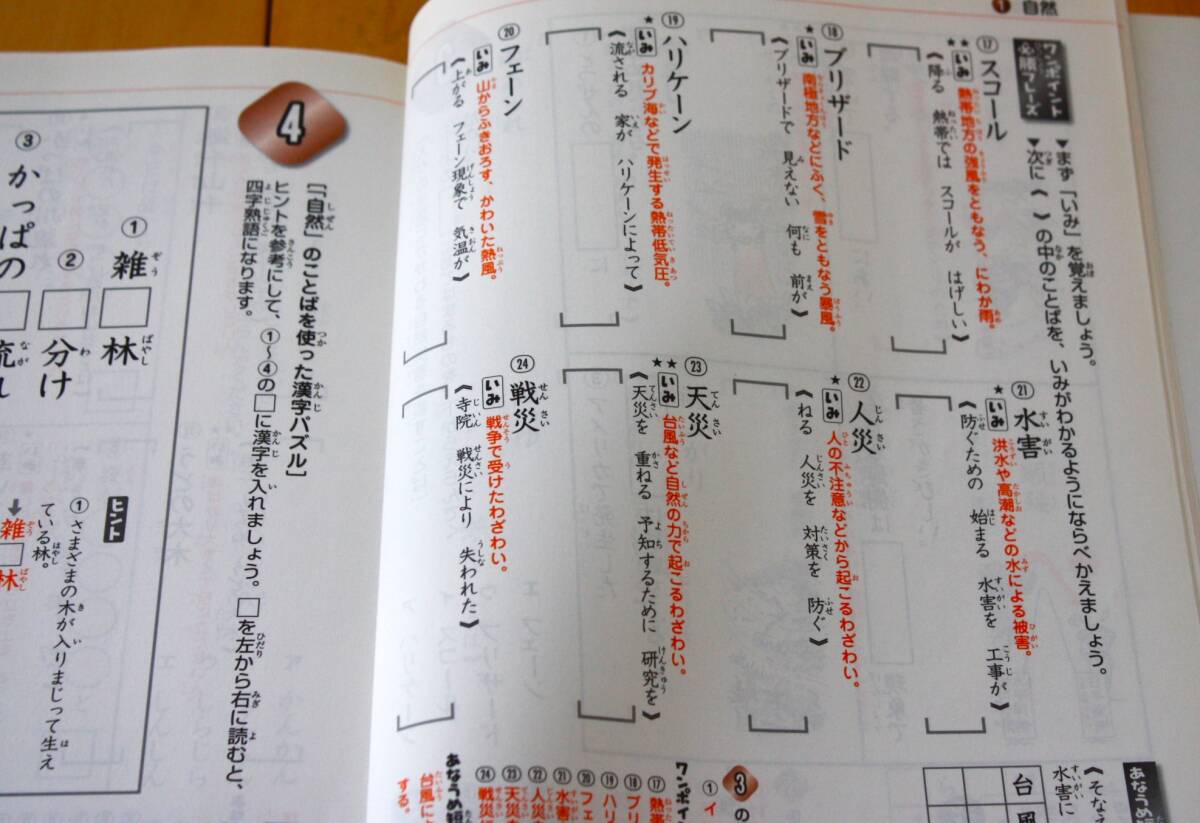 ① 自然
ワンポイント
必願フレーズ
▼まず「いみ」を覚えましょう。
▼次に《 》の中のことばを、いみがわかるようにならべかえましょう。
⑰ スコール
★★ いみ 熱帯地方の強風をともなう、にわか雨。
《降る 熱帯では スコールが はげしい》
⑱ ブリザード
★ いみ 南極地方などにふく、雪をともなう暴風。
《ブリザードで 見えない 何も 前が》
⑲ ハリケーン
★ いみ カリブ海などで発生する熱帯低気圧。
《流される 家が ハリケーンによって》
⑳ フェーン
いみ 山からふきおろす、かわいた熱風。
《上がる フェーン現象で 気温が》
㉑ 水害
★ いみ 洪水や高潮などの水による被害。
《防ぐための 始まる 水害を 工事が》
㉒ 人災
★ いみ 人の不注意などから起こるわざわい。
《ねる 人災を 対策を 防ぐ》
㉓ 天災
★★ いみ 台風など自然の力で起こるわざわい。
《天災を 重ねる 予知するために 研究を》
㉔ 戦災
いみ 戦争で受けたわざわい。
《寺院 戦災により 失われた》
あなうめ短
台風
《そなえ
水害に
3 の
① イ
ワンポイン
⑰ 熱帯
⑱ ブリ
⑲ ハリ
⑳ フェ
㉑ 水害
㉒ 人災を
㉓ 天災を
㉔ 戦災に
あなうめ短
台風によ
する。
4
［「自然」のことばを使った漢字パズル］
ヒントを参考にして、①〜④の□に漢字を入れましょう。□を左から右に読むと、
四字熟語になります。
① 雑□林
② □分け
③ かっぱの□流れ
ヒント
① さまざまの木が入りまじって生え
ている林。
➡雑□林